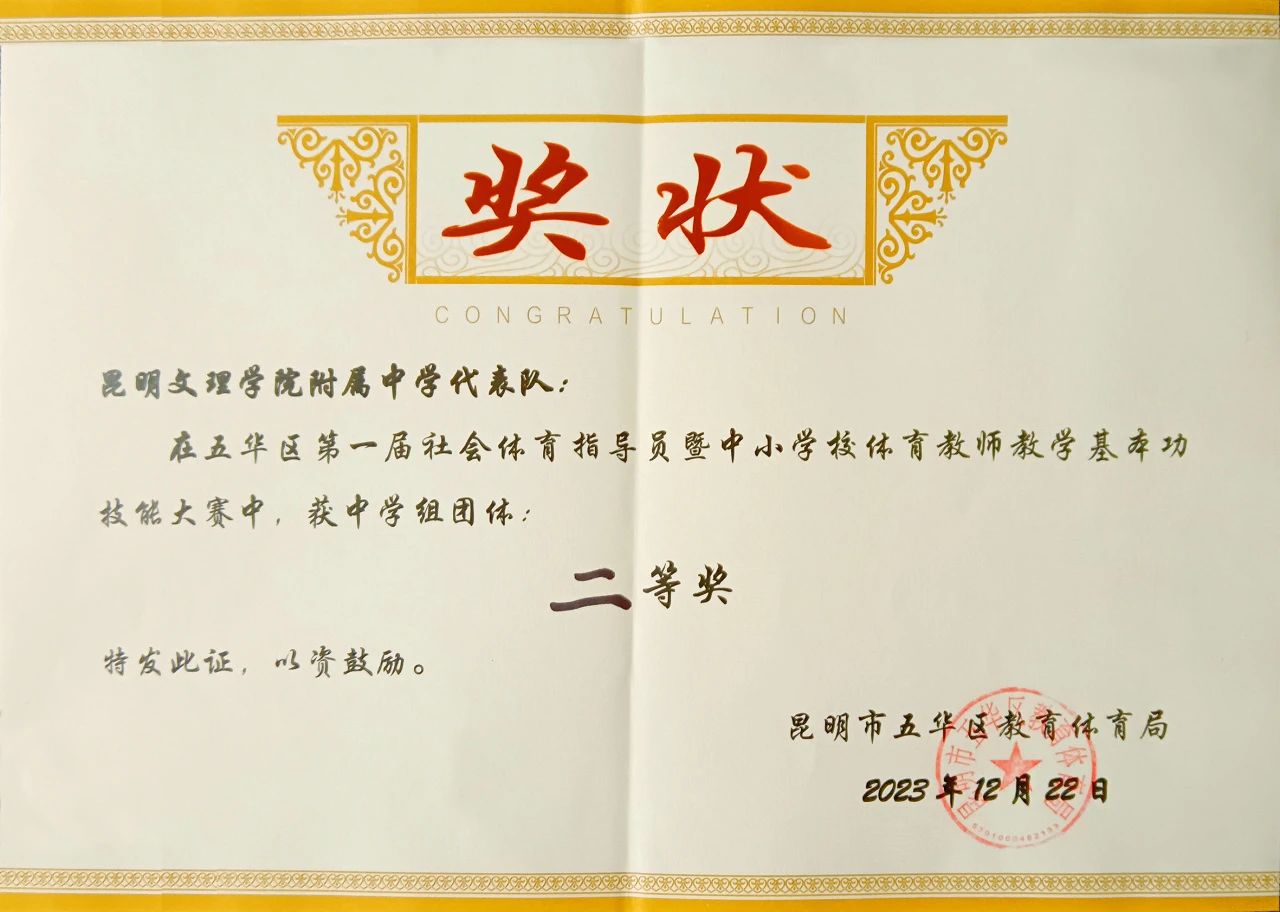 奖状
CONGRATULATION
昆明文理学院附属中学代表队：
在五华区第一届社会体育指导员暨中小学校体育教师教学基本功
技能大赛中，获中学组团体：
二等奖
特发此证，以资鼓励。
昆明市五华区教育体育局
2023年12月22日
昆明市五华区教育体育局